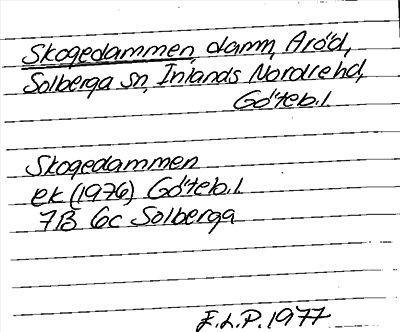 Skogedammen, damm, Aröd,
Solberga sn, Inlands Nordre hd,
Göteb.l.
Skogedammen
ek (1976) Göteb.l.
7B 6c Solberga
E.L.P. 1977